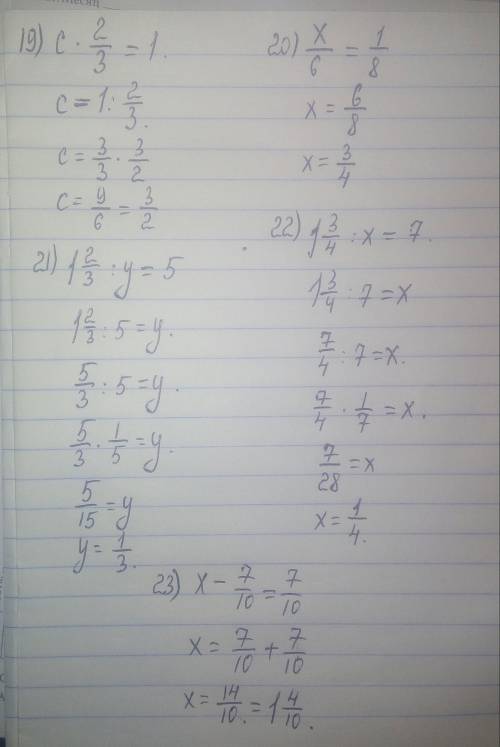 19) c · 2/3 = 1.
c = 1 : 2/3.
c = 3/3 · 3/2
c = 9/6 = 3/2
20) x/6 = 1/8
x = 6/8
x = 3/4
21) 1 2/3 : y = 5
1 2/3 : 5 = y.
5/3 : 5 = y.
5/3 · 1/5 = y.
5/15 = y
y = 1/3.
22) 1 3/4 : x = 7.
1 3/4 : 7 = x
7/4 : 7 = x.
7/4 · 1/7 = x.
7/28 = x
x = 1/4.
23) x - 7/10 = 7/10
x = 7/10 + 7/10
x = 14/10. = 1 4/10.